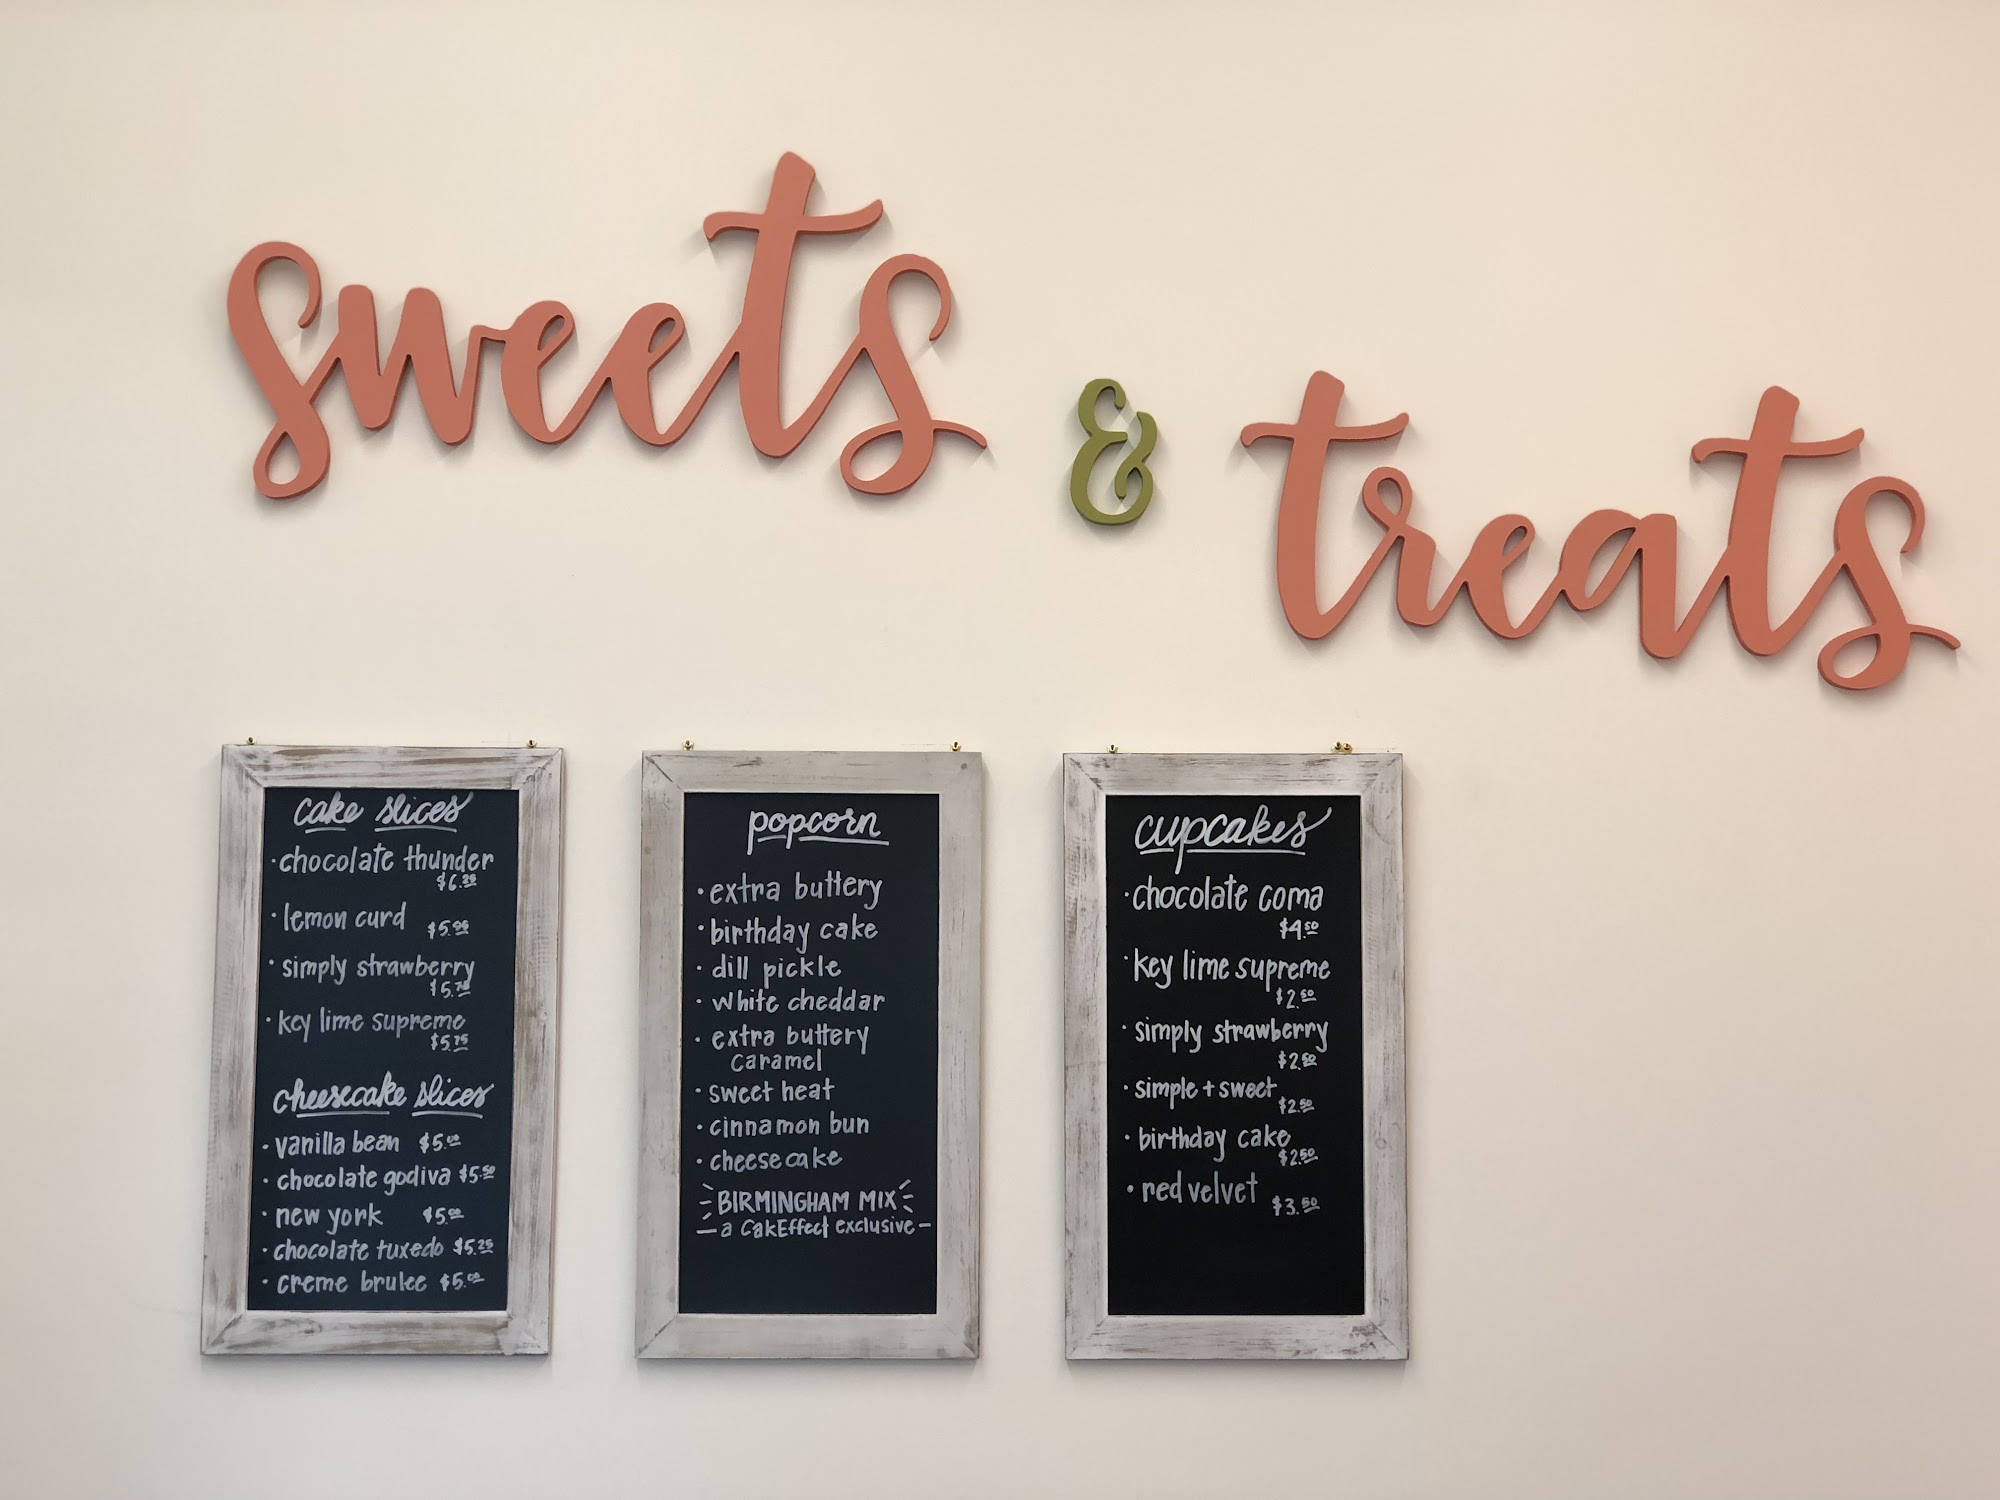 sweets
&
treats
cake slices
· chocolate thunder
$6.25
· lemon curd $5.95
· simply strawberry
$5.75
· key lime supreme
$5.75
cheesecake slices
· vanilla bean $5.00
· chocolate godiva $5.50
· new york $5.00
· chocolate tuxedo $5.25
· creme brulee $5.00
popcorn
· extra buttery
· birthday cake
· dill pickle
· white cheddar
· extra buttery
caramel
· sweet heat
· cinnamon bun
· cheesecake
BIRMINGHAM MIX
- a CakEffect exclusive -
cupcakes
· chocolate coma
$4.50
· key lime supreme
$2.50
· simply strawberry
$2.50
· simple + sweet
$2.50
· birthday cake
$2.50
· red velvet $3.50